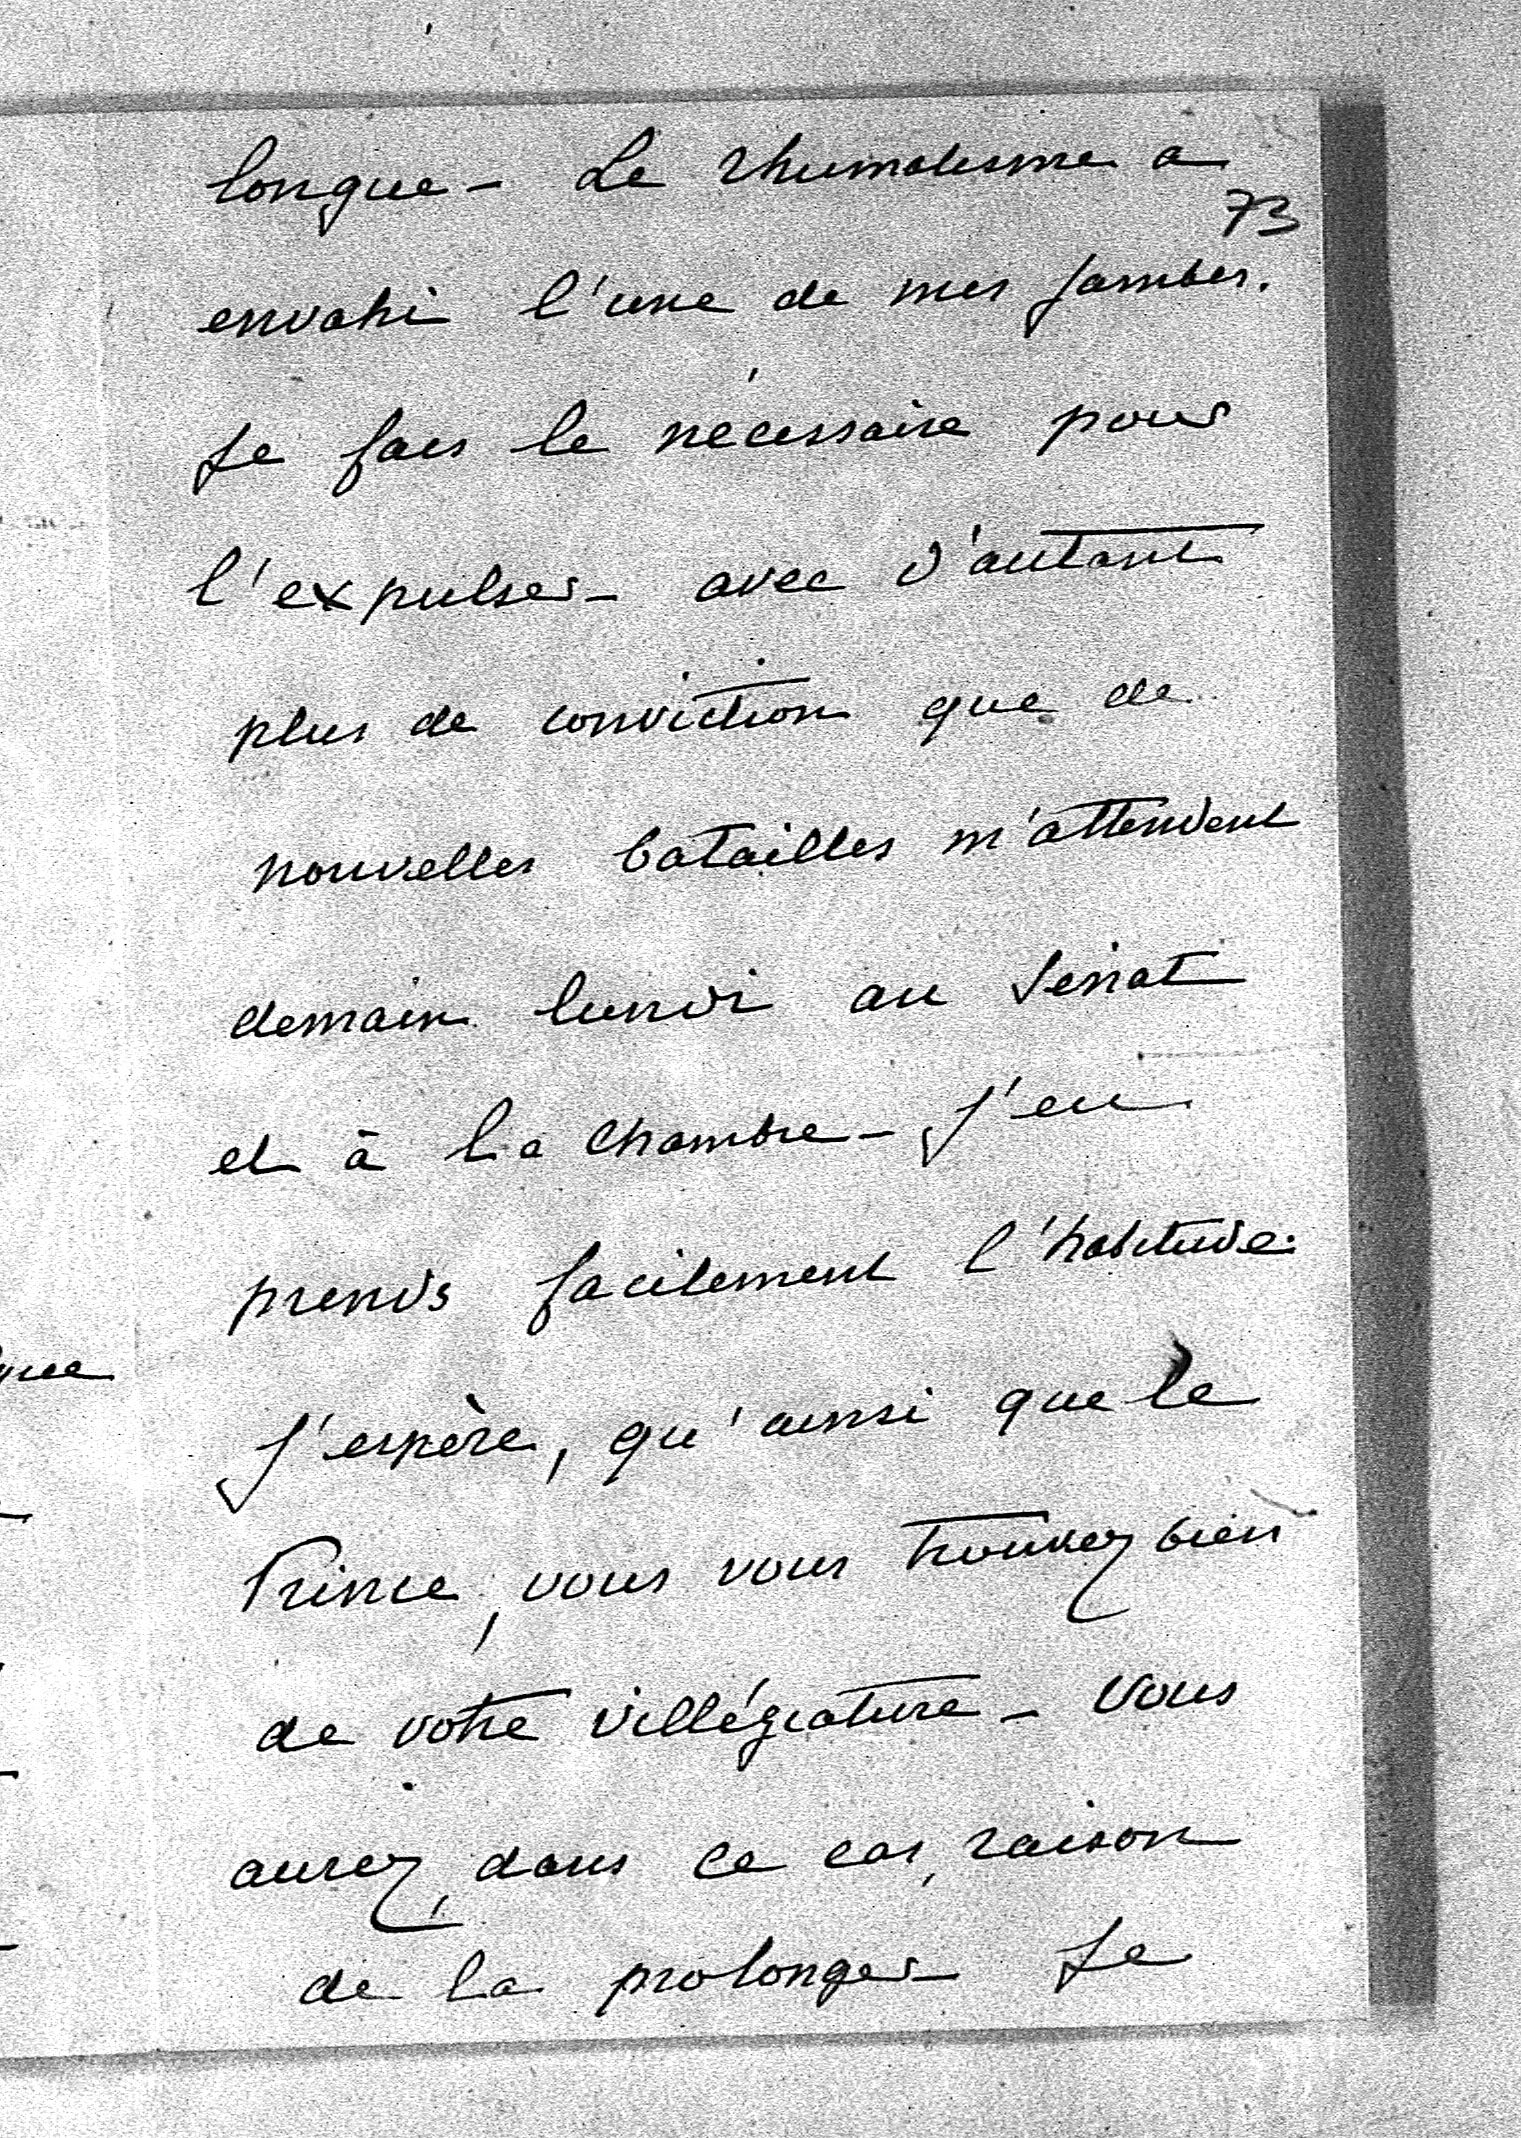 longue - Le rhumatisme a
73
envahi l'une de mes jambes.
Je fais le nécessaire pour
l'expulser - avec d'autant
plus de conviction que de
nouvelles batailles m'attendent
demain lundi au Sénat
et à la Chambre - J'en
prends facilement l'habitude.
J'espère, qu'ainsi que le
Prince, vous vous trouvez bien
de votre villégiature - Vous
aurez, dans ce cas, raison
de la prolonger - Je